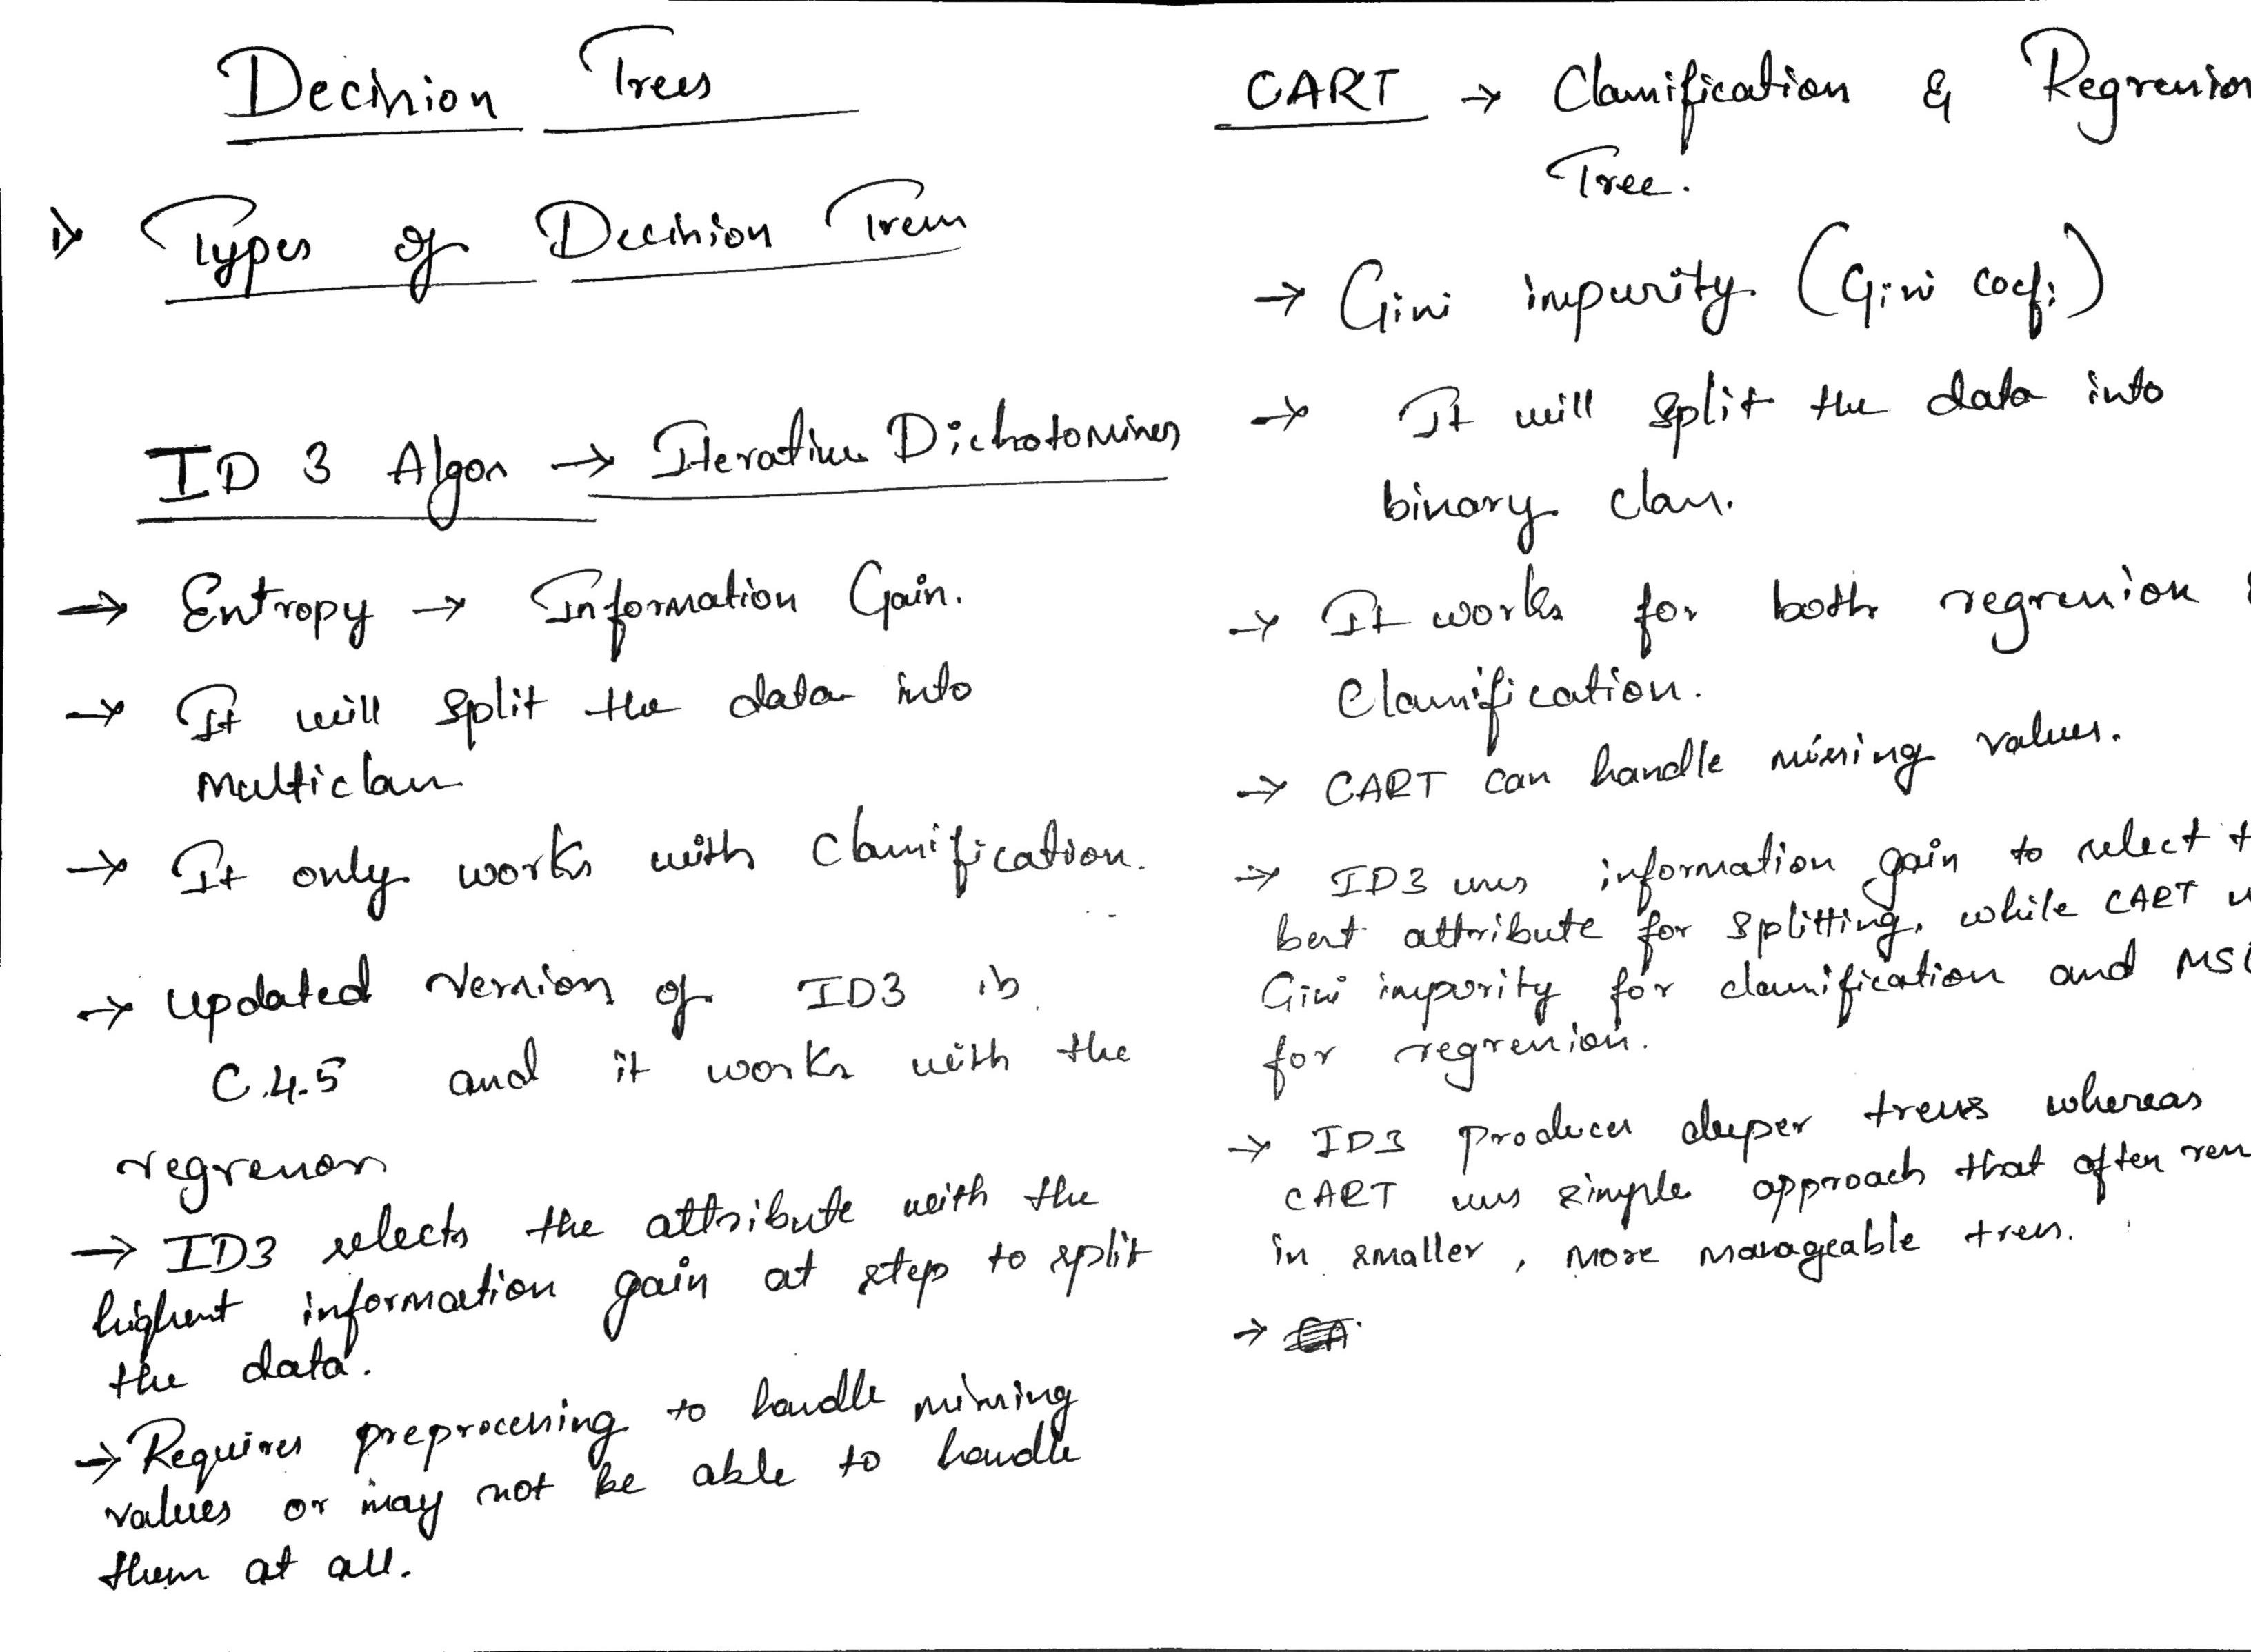 Decision Trees
1) Types of Decision Trees
ID 3 Algon → Iterative Dichotomiser
→ Entropy → Information Gain.
→ It will split the data into
Multiclass
→ It only works with classification.
→ updated version of ID3 is
C.4.5 and it works with the
regression
→ ID3 selects the attribute with the
highest information gain at step to split
the data.
→ Requires preprocessing to handle missing
values or may not be able to handle
them at all.
CART → Classification & Regression
Tree.
→ Gini impurity (Gini coef:)
→ It will split the data into
binary class.
→ It works for both regression
Classification.
→ CART can handle missing values.
→ ID3 uses information gain to select t
best attribute for splitting, while CART u
Gini impurity for classification and MS
for regression.
→ ID3 produces deeper trees whereas
CART uses simple approach that often res
in smaller, more manageable trees.
→